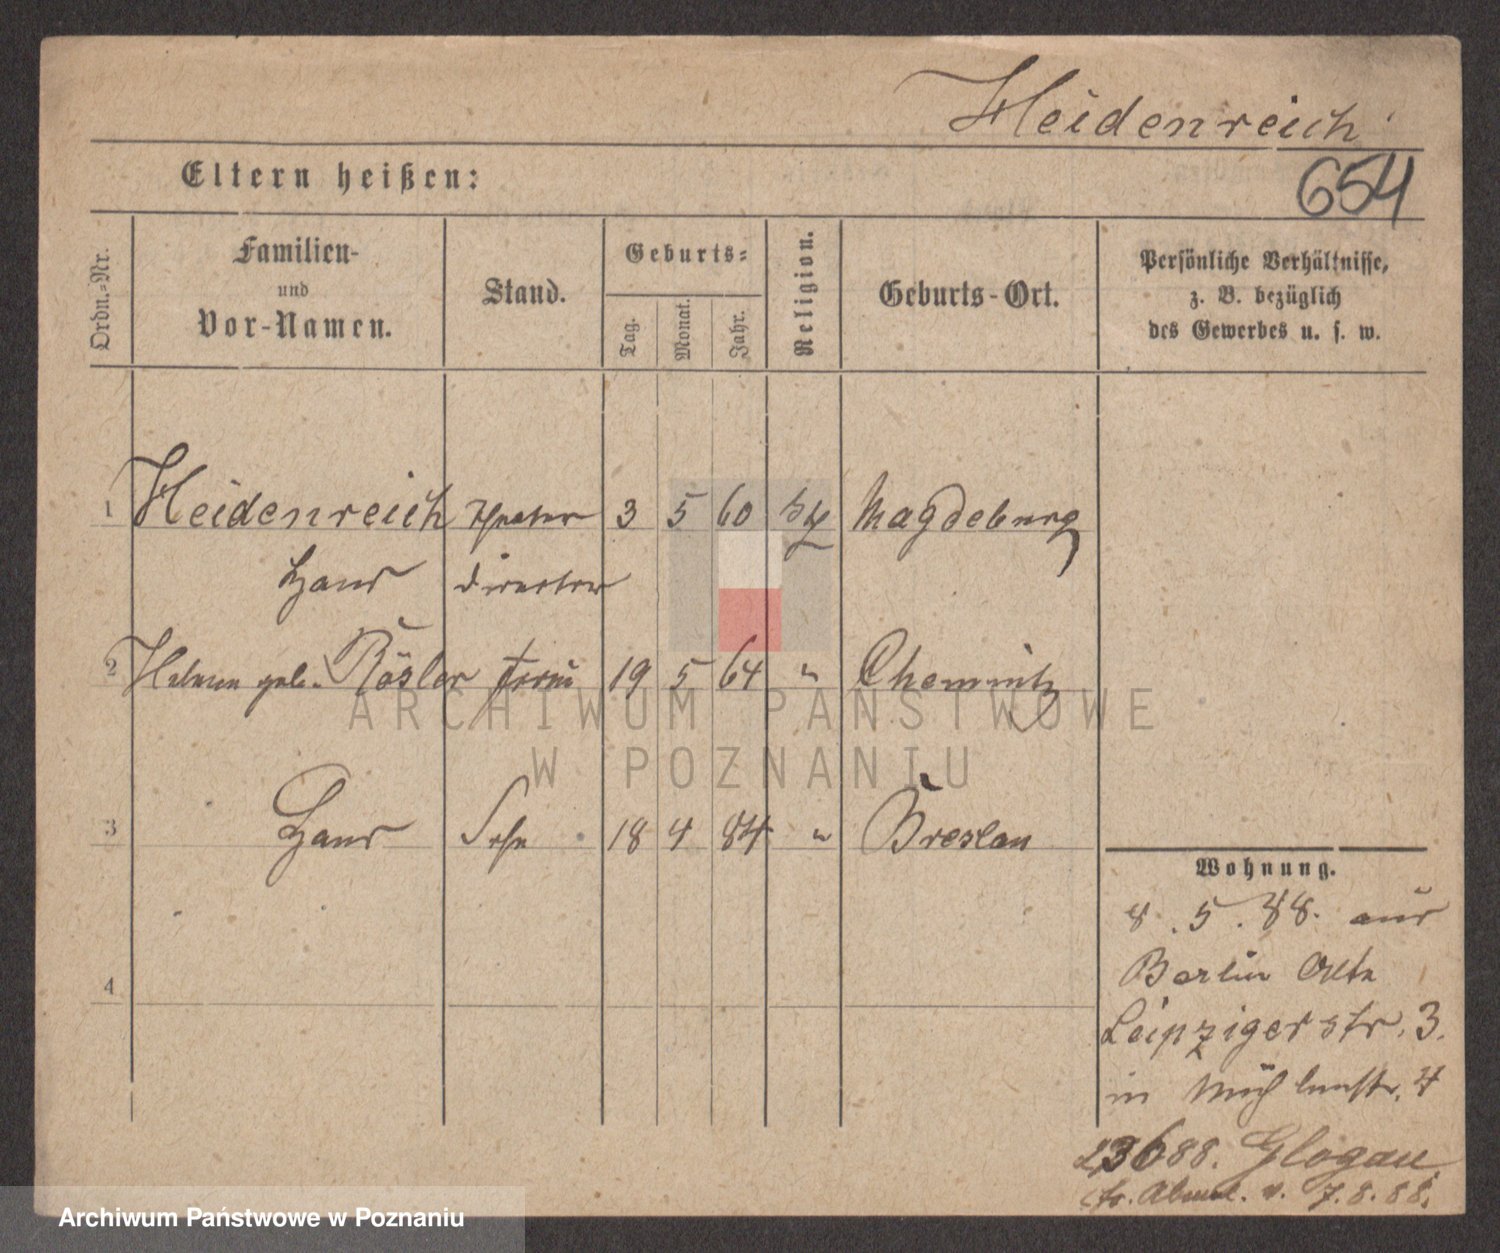 Heidenreich
654
Eltern heißen:
Ordn.-Nr.
Familien-
und
Vor-Namen.
Stand.
Geburts-
Tag.
Monat.
Jahr.
Religion.
Geburts-Ort.
Persönliche Verhältnisse,
z. B. bezüglich
des Gewerbes u. s. w.
1 Heidenreich Theater 3 5 60 Magdeburg
Hans director
2 Helene geb. Rösler Frau 19 5 64 " Chemnitz
3 Hans Sohn 18 4 84 " Breslau
4
Wohnung.
8.5.88. aus
Berlin Alte
Leipzigerstr. 3.
in Mühlenstr. 4
23 6 88. Glogau
fr. Abmel. v. 7.8.88.
ARCHIWUM PAŃSTWOWE
W POZNANIU
Archiwum Państwowe w Poznaniu